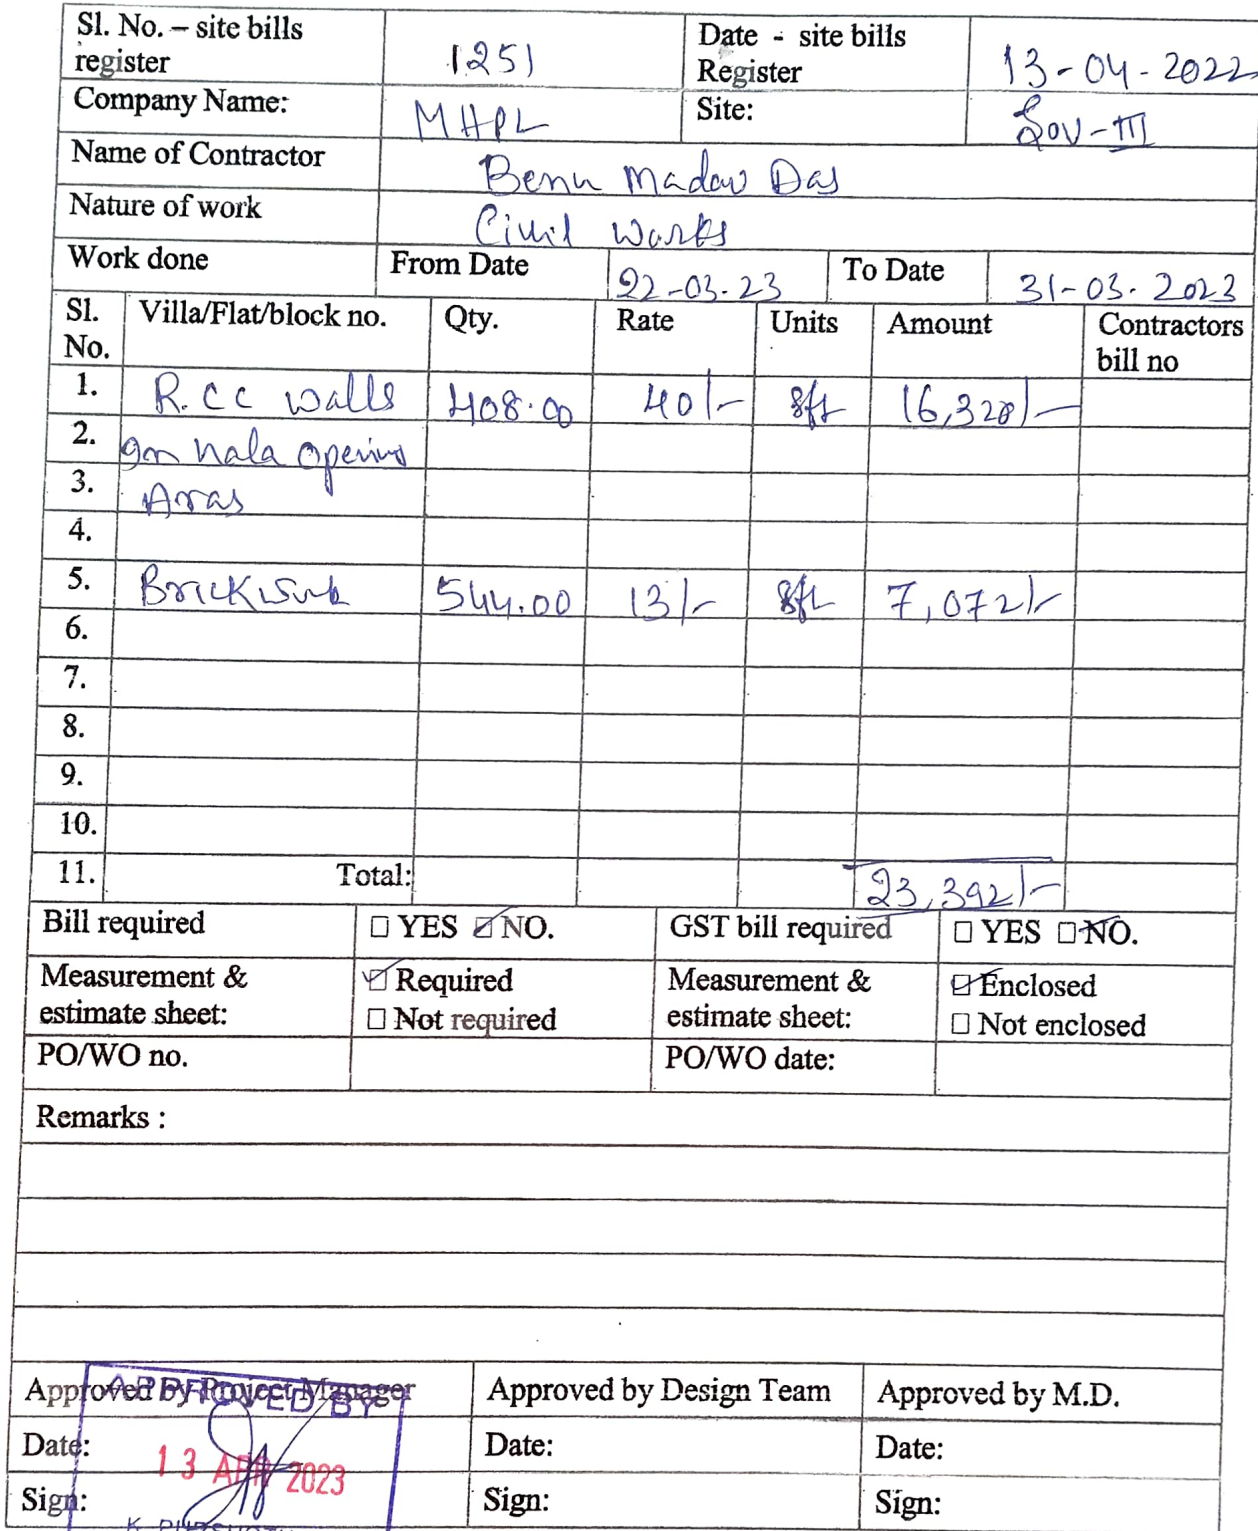 Sl. No. – site bills register 1251 Date - site bills Register 13-04-2022
Company Name: MHPL Site: SOV-III
Name of Contractor Benu Madav Das
Nature of work Civil Works
Work done From Date 22-03-23 To Date 31-03-2023
Sl. No. Villa/Flat/block no. Qty. Rate Units Amount Contractors bill no
1. R.CC walls 408.00 40/- sft 16,320/-
2. on nala opening
3. Aras
4.
5. Brickwork 544.00 13/- sft 7,072/-
6.
7.
8.
9.
10.
11. Total: 23,392/-
Bill required ☐ YES ☑ NO. GST bill required ☐ YES ☑ NO.
Measurement & estimate sheet: ☑ Required ☐ Not required Measurement & estimate sheet: ☑ Enclosed ☐ Not enclosed
PO/WO no. PO/WO date:
Remarks :
Approved By Project Manager Approved by Design Team Approved by M.D.
APPROVED BY
Date: 13 APR 2023 Date: Date:
Sign: Sign: Sign: